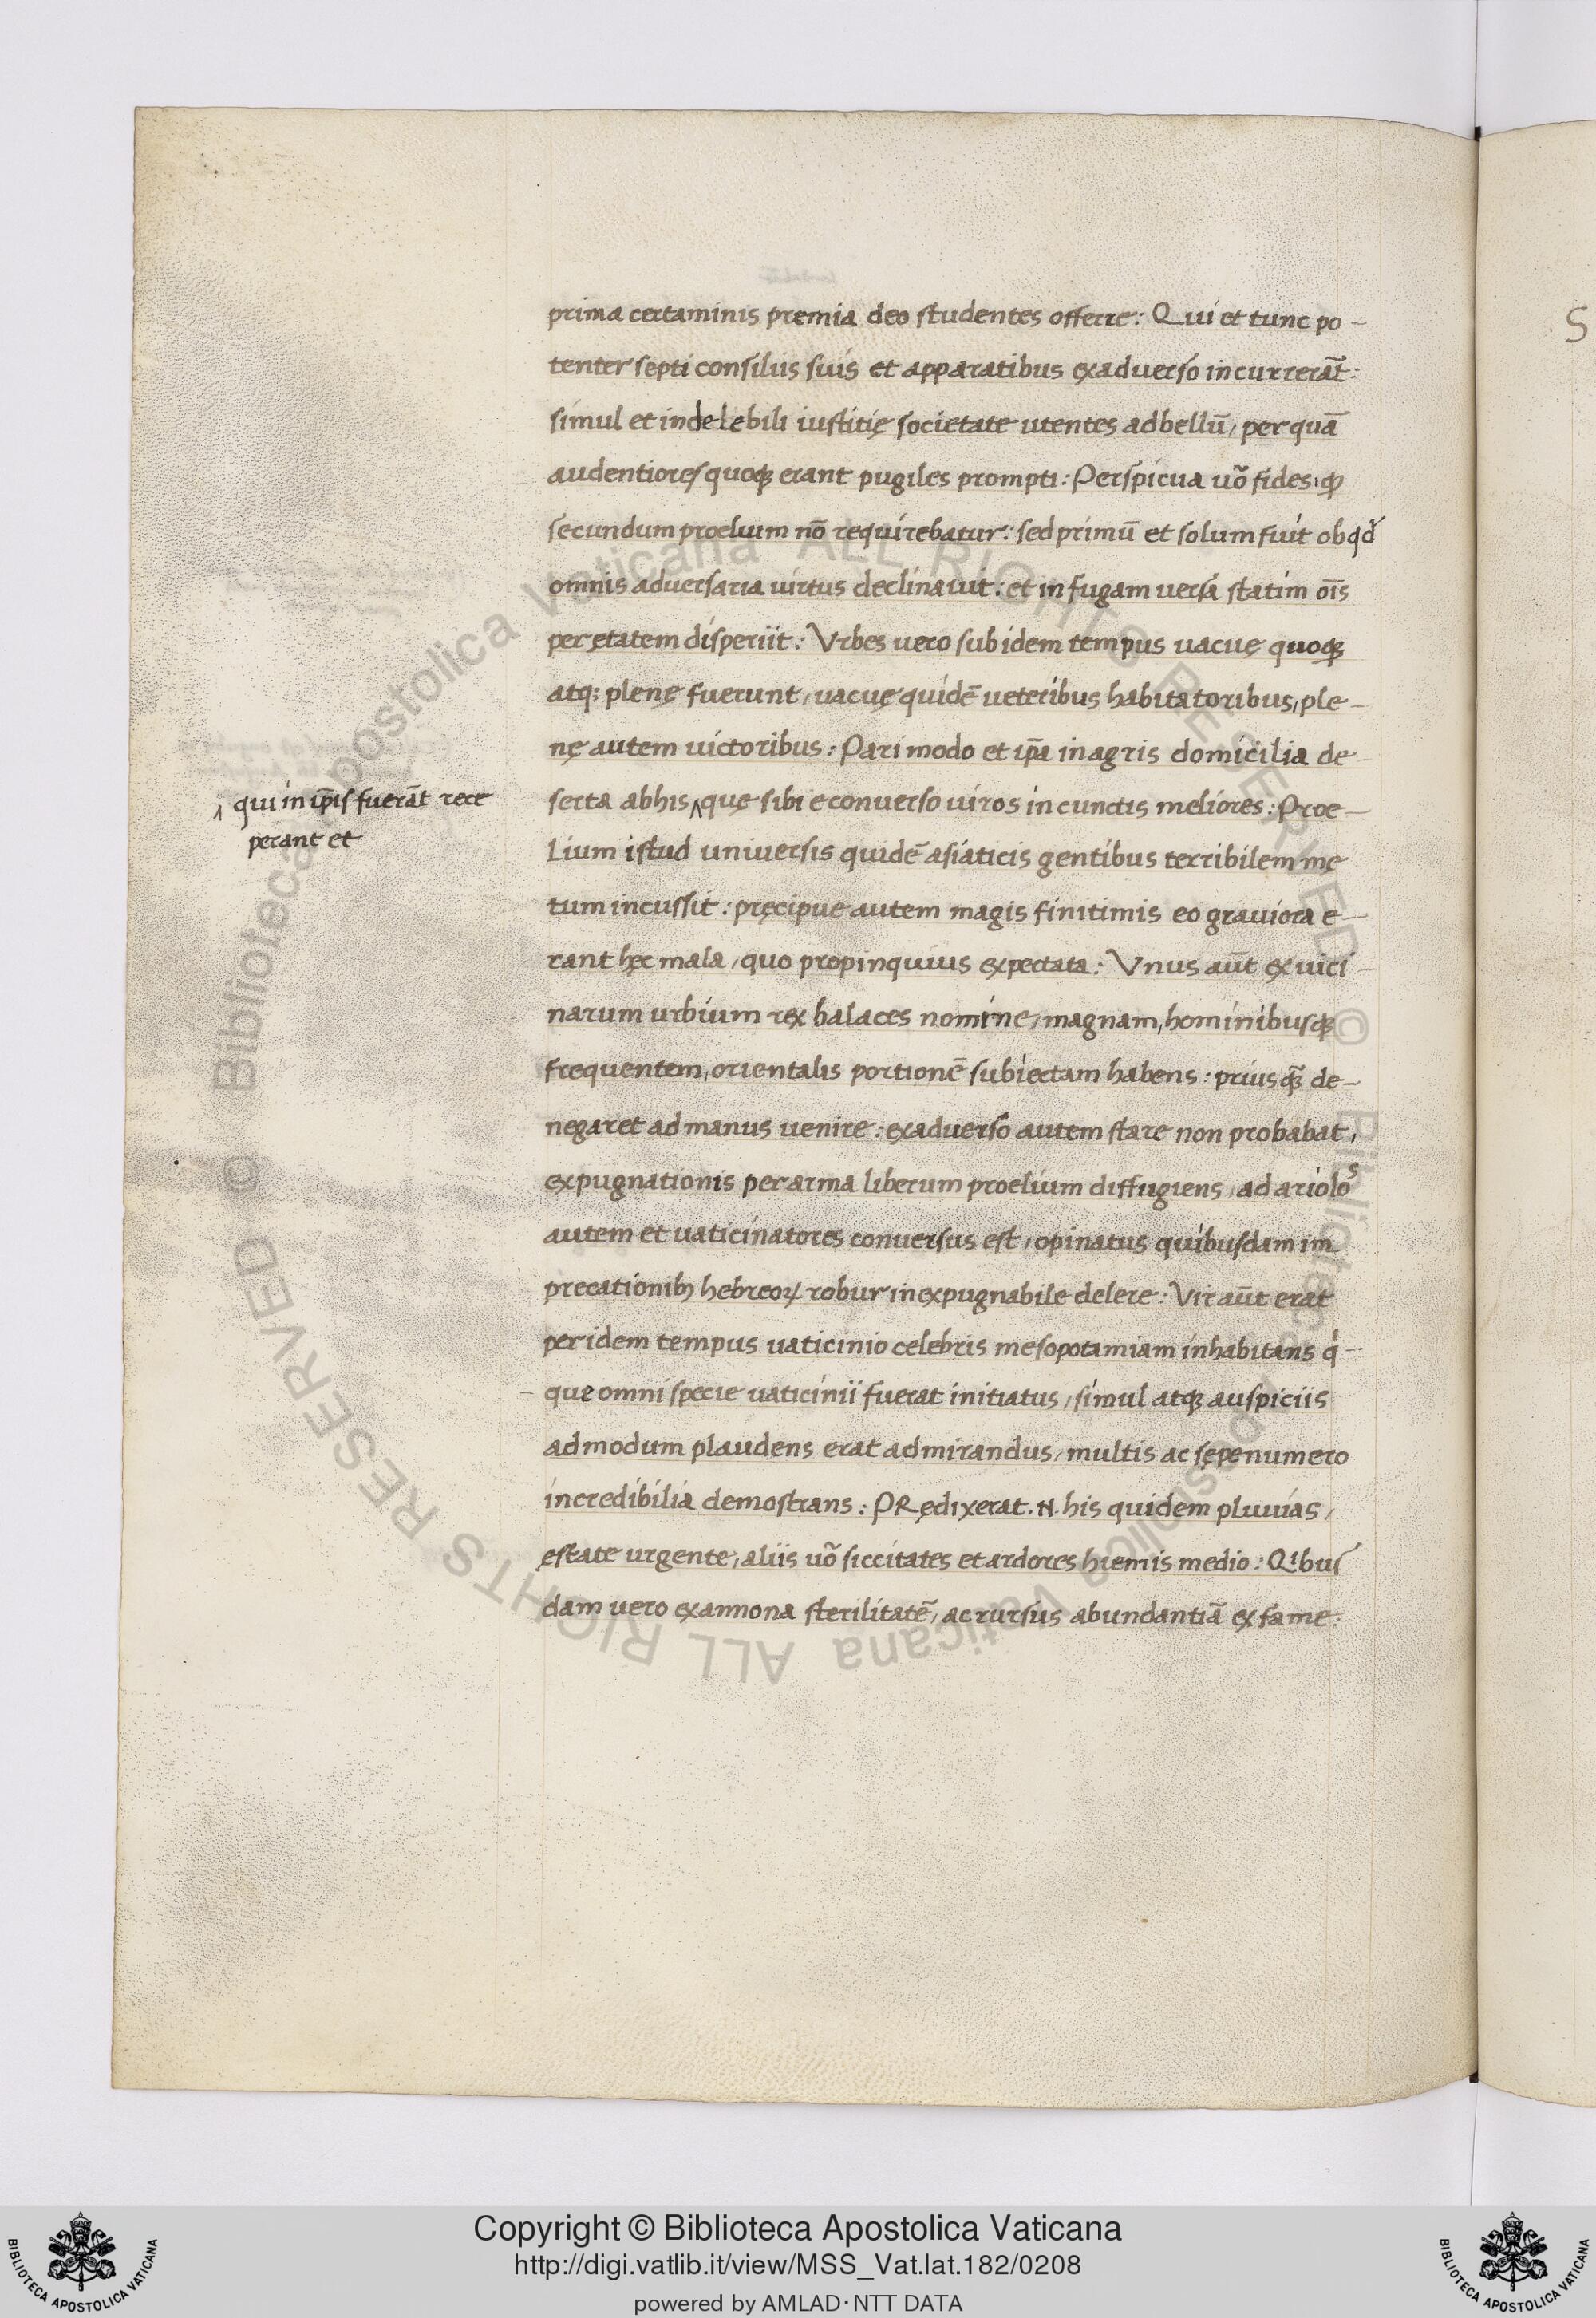 prima certaminis premia deo studentes offerre: Qui et tunc po-
tenter septi consiliis suis et apparatibus exadverso incurrerāt:
simul et indelebili iustitię societate utentes adbellū, per quā
audentiores quoqꝫ erant pugiles prompti: Perspicua uō fides,
secundum proelium nō requirebatur: sed primū et solum fuit ob
omnis adversaria uirtus declinavit: et in fugam versa statim oīs
per ętatem disperiit: Vrbes vero sub idem tempus vacuę quoqꝫ
atq: plenę fuerunt, vacuę quidē veteribus habitatoribus, ple-
nę autem victoribus: Pari modo et ip̄a in agris domicilia de-
serta abhis ʌ quę sibi econverso viros in cunctis meliores: Proe-
ʌ qui in ip̄is fuerāt rece
perant et
lium istud universis quidē asiaticis gentibus terribilem mę
tum incussit: pręcipue autem magis finitimis eo graviora e-
rant hęc mala, quo propinquius expectata: Vnus aūt ex vici-
narum urbium rex balaces nomine, magnam, hominibusqꝫ
frequentem, orientalis portionē subiectam habens: priusqꝫ̄ de-
negaret ad manus venire: exadverso autem stare non probabat,
expugnationis per arma liberum proelium diffugiens, ad ariolos
autem et vaticinatores conversus est, opinatus quibusdam im
precationibꝫ hebreoꝝ robur inexpugnabile delere: Vir aūt erat
per idem tempus vaticinio celebris mesopotamiam inhabitans qͥ-
que omni specie vaticinii fuerat initiatus, simul atqꝫ auspiciis
admodum plaudens erat admirandus, multis ac sępenumero
incredibilia demostrans: PRędixerat .N. his quidem pluvias,
ęstate urgente, aliis uō siccitates et ardores hiemis medio: Qⁱbus
dam vero ex annona sterilitatē, ac rursus abundantiā ex fame:
S
Copyright © Biblioteca Apostolica Vaticana
http://digi.vatlib.it/view/MSS_Vat.lat.182/0208
powered by AMLAD·NTT DATA
BIBLIOTECA APOSTOLICA VATICANA
BIBLIOTECA APOSTOLICA VATICANA
© Biblioteca Apostolica Vaticana ALL RIGHTS RESERVED
© Biblioteca Apostolica Vaticana ALL RIGHTS RESERVED